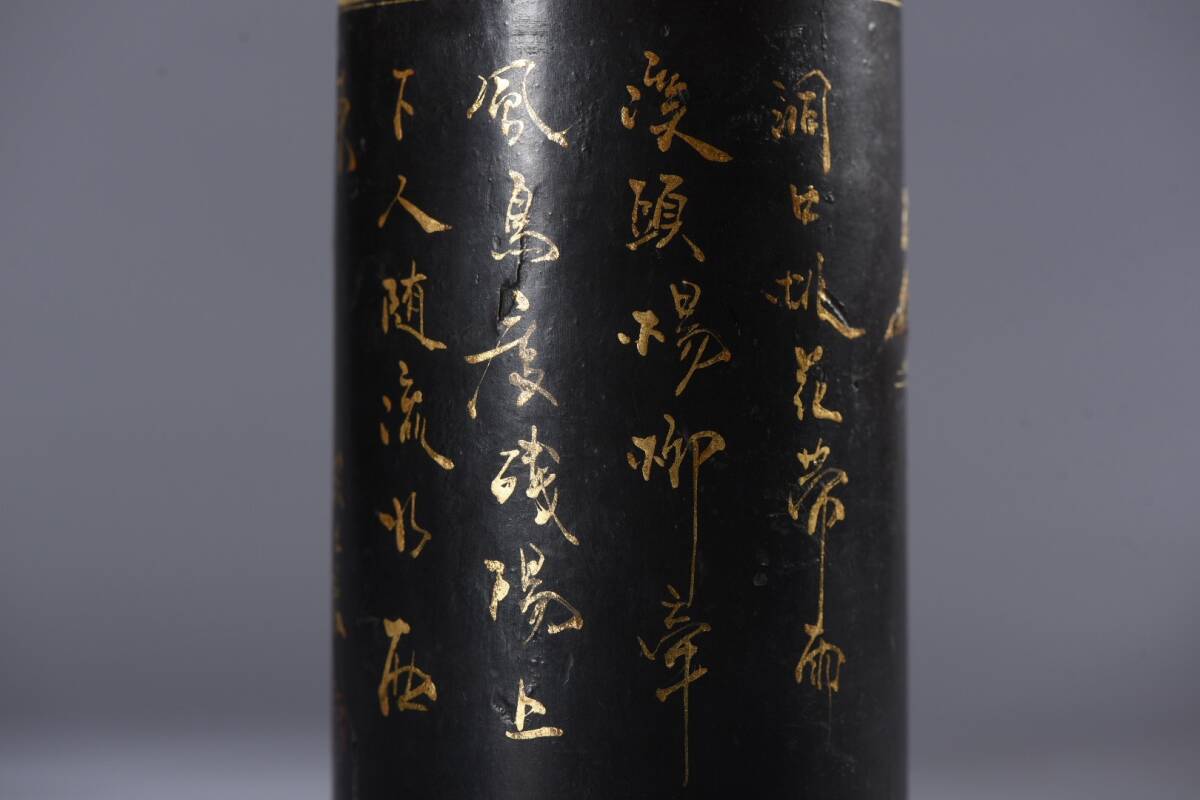 洞口桃花帶雨
溪頭楊柳牽
風鳥度殘陽上
下人随流水西